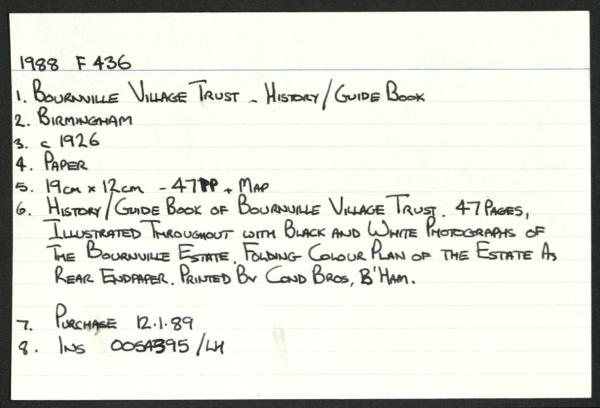 1988 F 436
1. Bournville Village Trust - History/Guide Book
2. Birmingham
3. c 1926
4. Paper
5. 19cm x 12cm - 47pp + Map
6. History/Guide Book of Bournville Village Trust. 47 Pages,
Illustrated Throughout with Black and White Photographs of
The Bournville Estate. Folding Colour Plan of the Estate As
Rear Endpaper. Printed By Cond Bros, B'Ham.
7. Purchase 12.1.89
8. Ins 0054395/LH